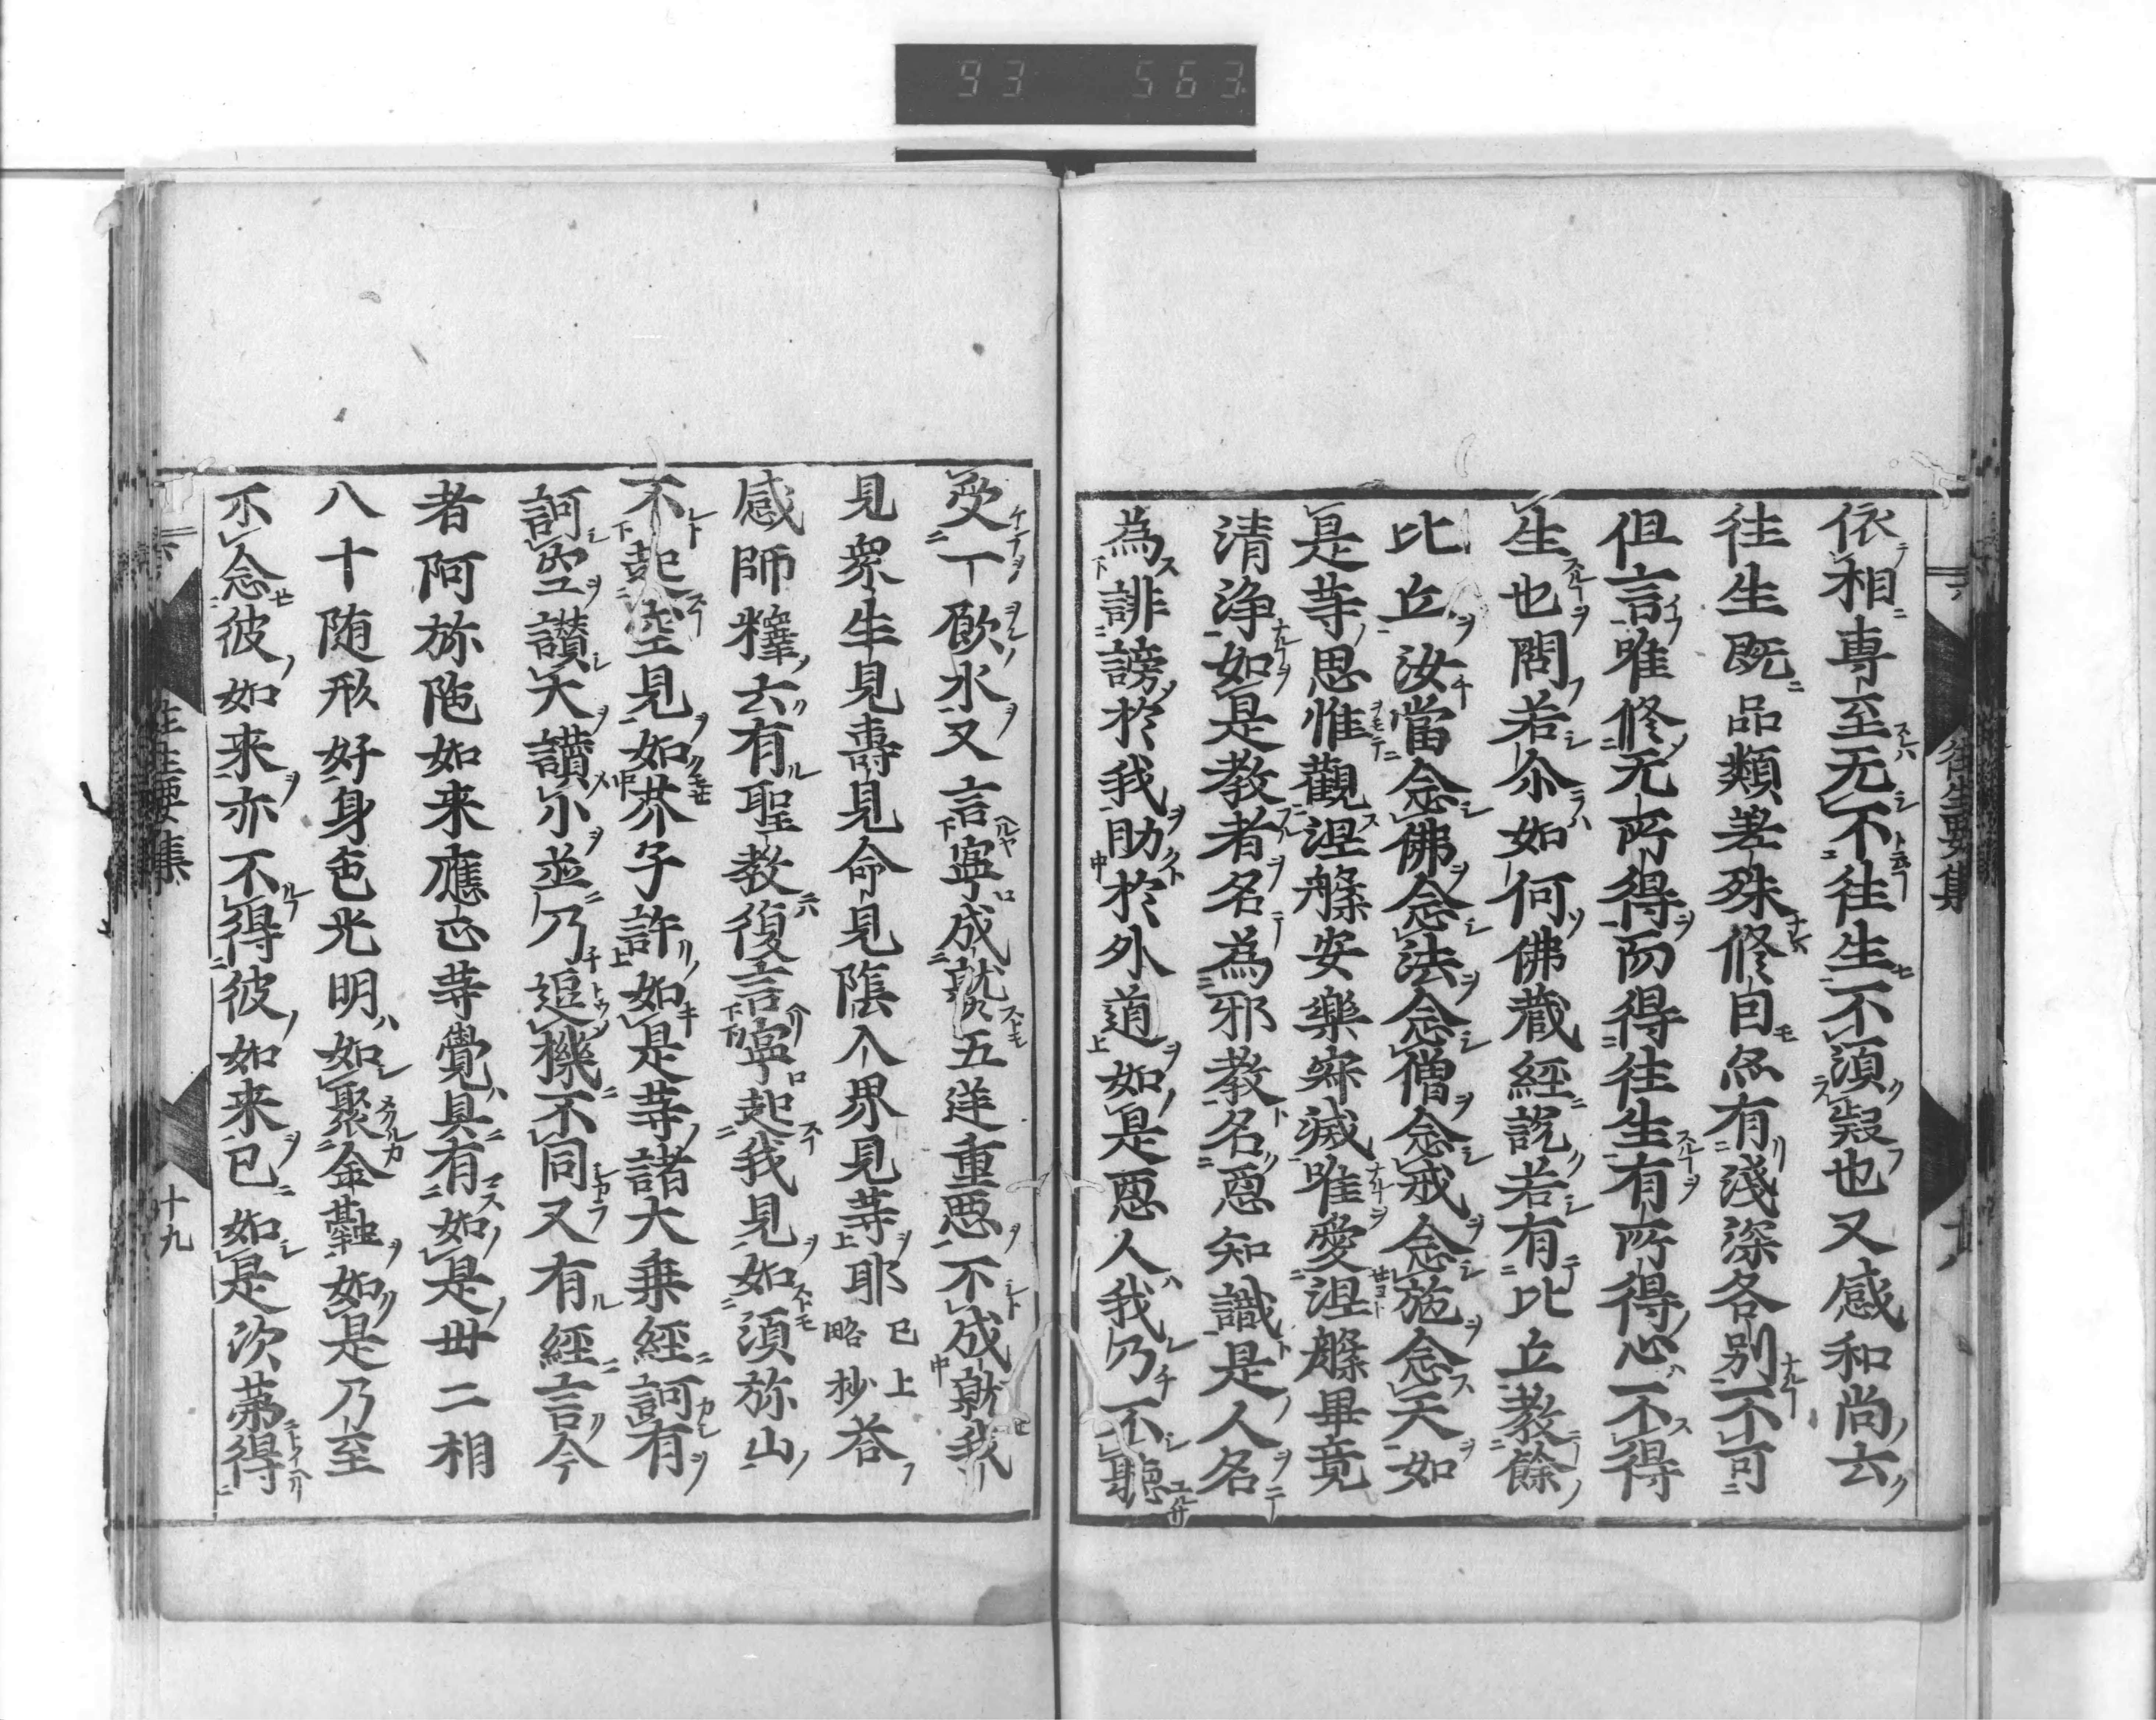 93 563
往生要集
依相專至无不往生不須疑也又感和尚云
往生既品類差殊修因亦有淺深各別不可
但言唯修无所得而得往生有所得心不得
生也問若尒如何佛蔵經説若有比丘教餘
比丘汝當念佛念法念僧念戒念施念天如
是等思惟觀涅槃安樂寂滅唯愛涅槃畢竟
清淨如是教者名為邪教名惡知識是人名
為誹謗於我助於外道如是惡人我乃不聽
受一飲水又言寧成就五逆重惡不成就我
見衆生見壽見命見陰入界見等耶已上略抄荅
感師釋云有聖教復言寧起我見如須弥山
不起空見如芥子許如是等諸大乗経訶有
訶空讃大讃小並乃逗機不同又有經言今
者阿弥陁如来應正等覺具有如是丗二相
八十随形好身色光明如聚金融如是乃至
不念彼如来亦不得彼如来已如是次第得
往生要集
十九